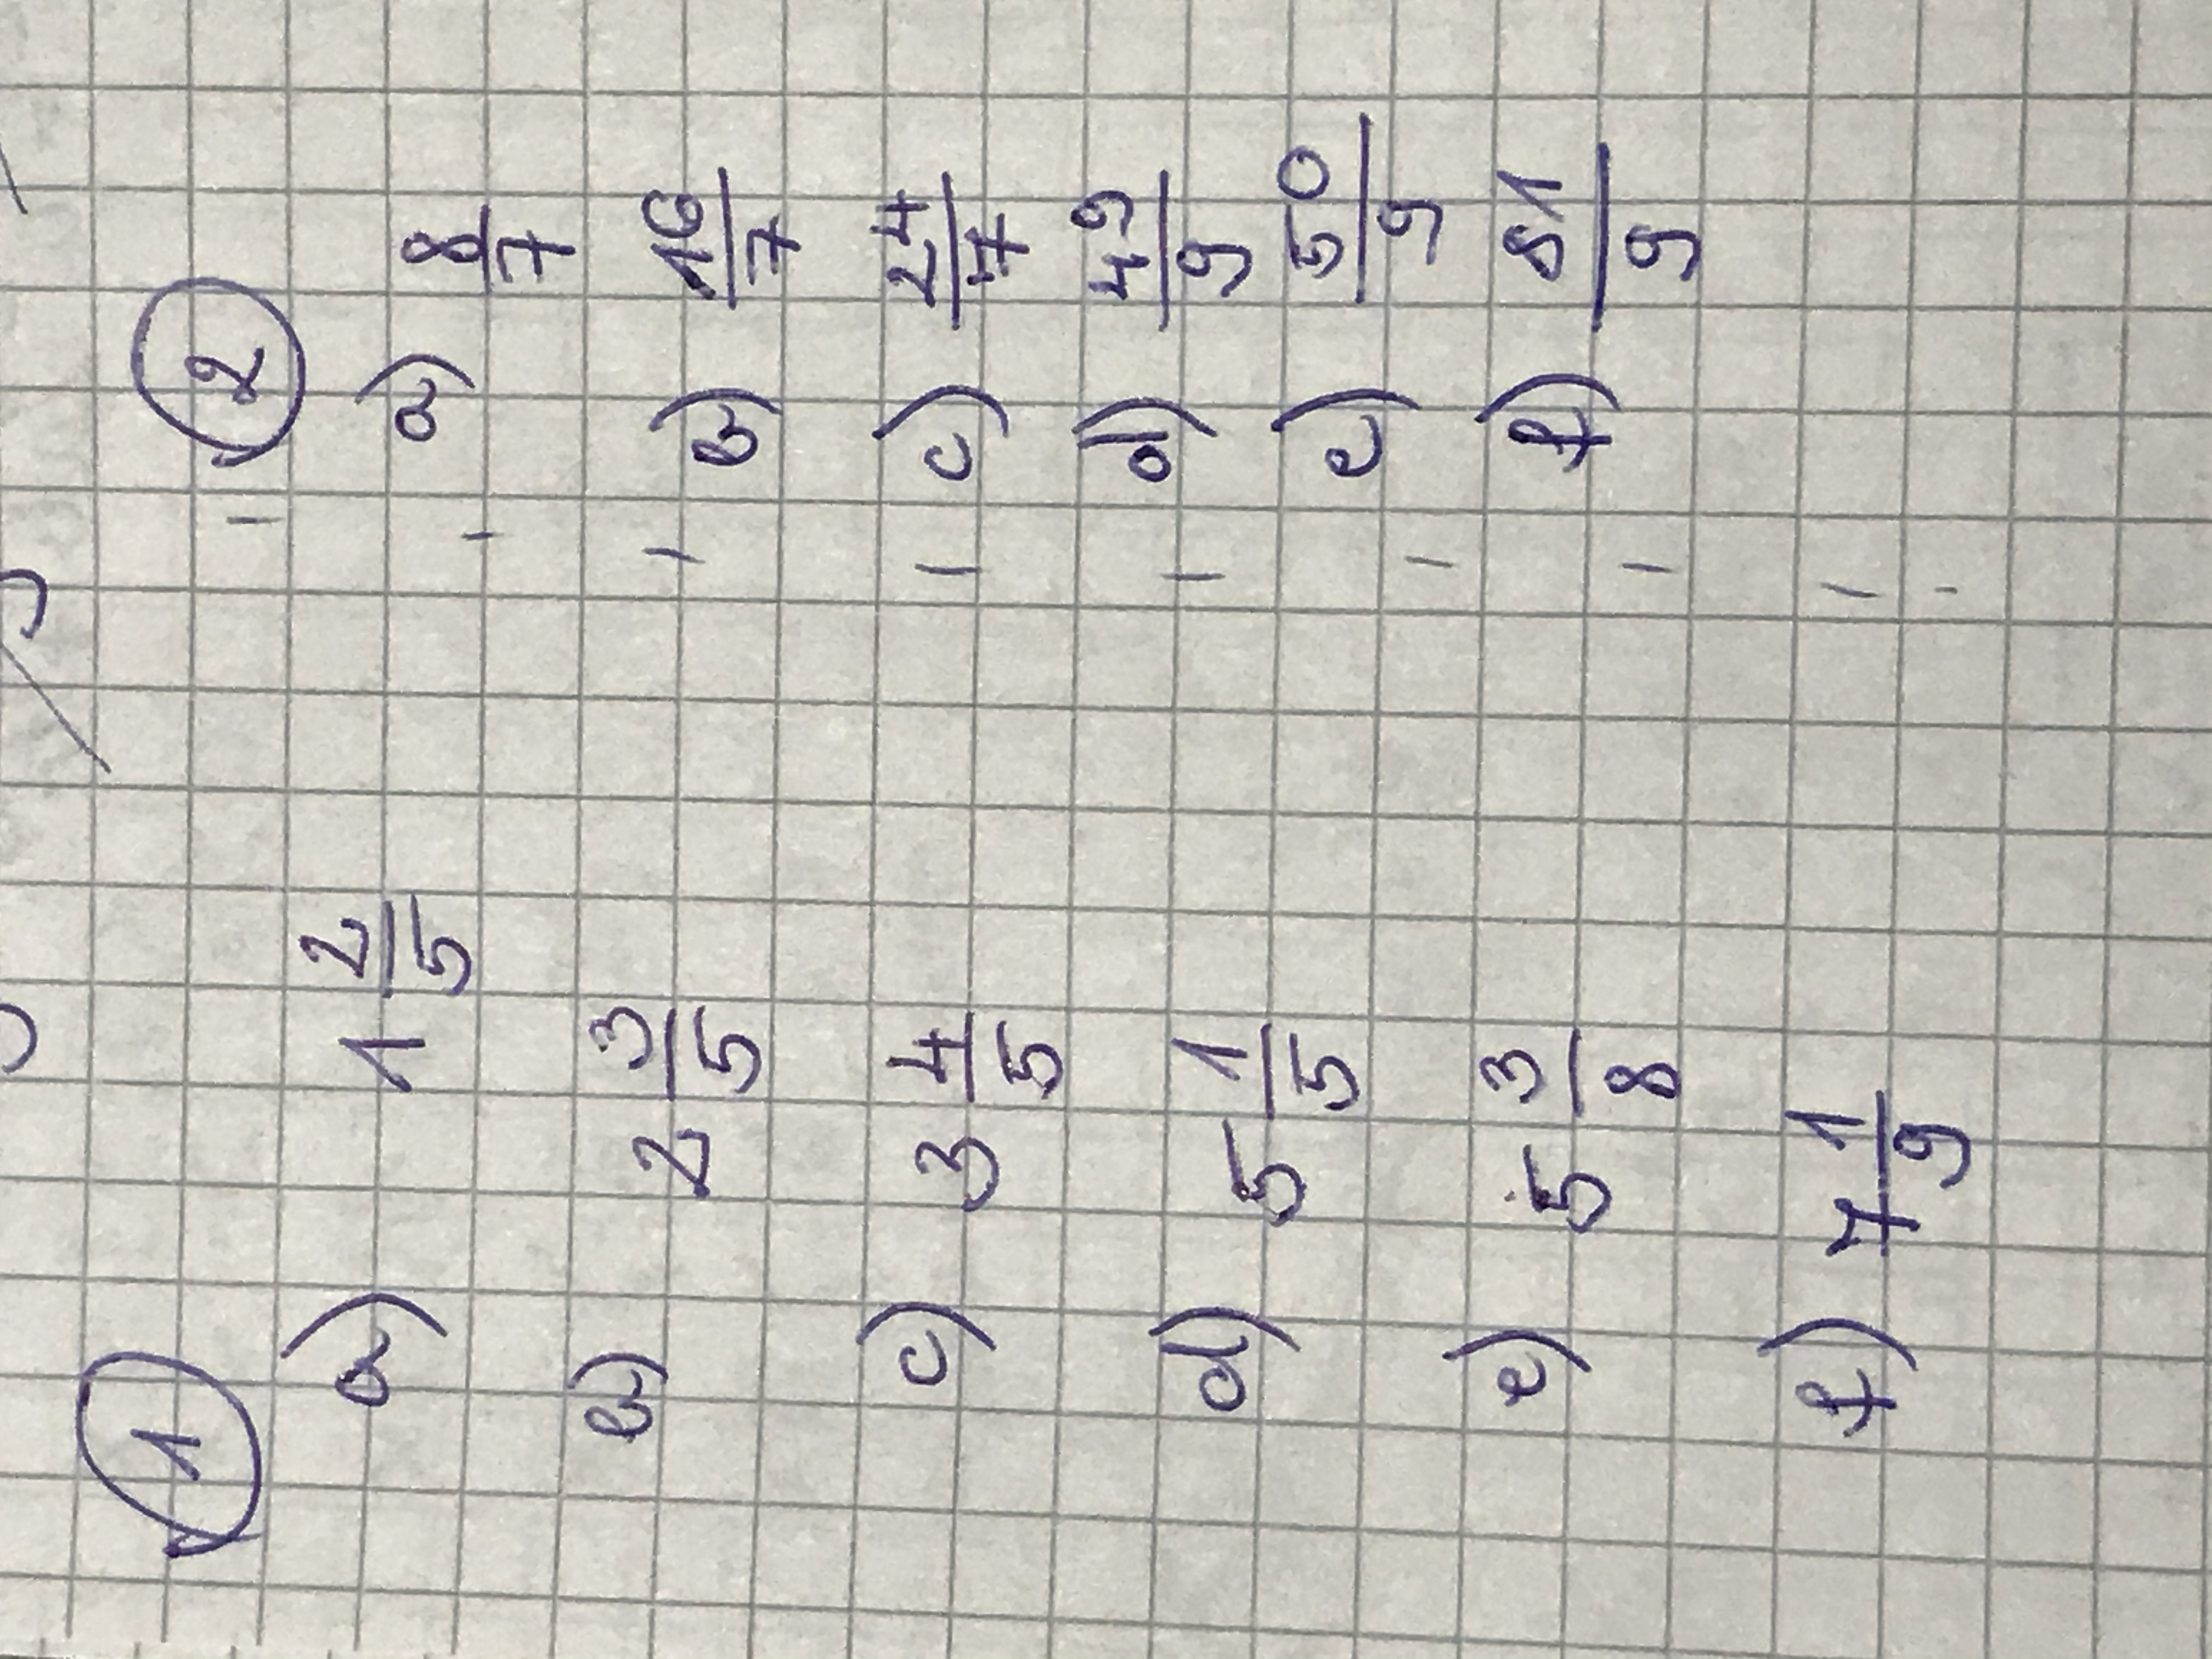 1
a) 1 2/5
b) 2 3/5
c) 3 4/5
d) 5 1/5
e) 5 3/8
f) 7 1/9
2
a) 8/7
b) 16/7
c) 24/7
d) 49/9
e) 50/9
f) 81/9